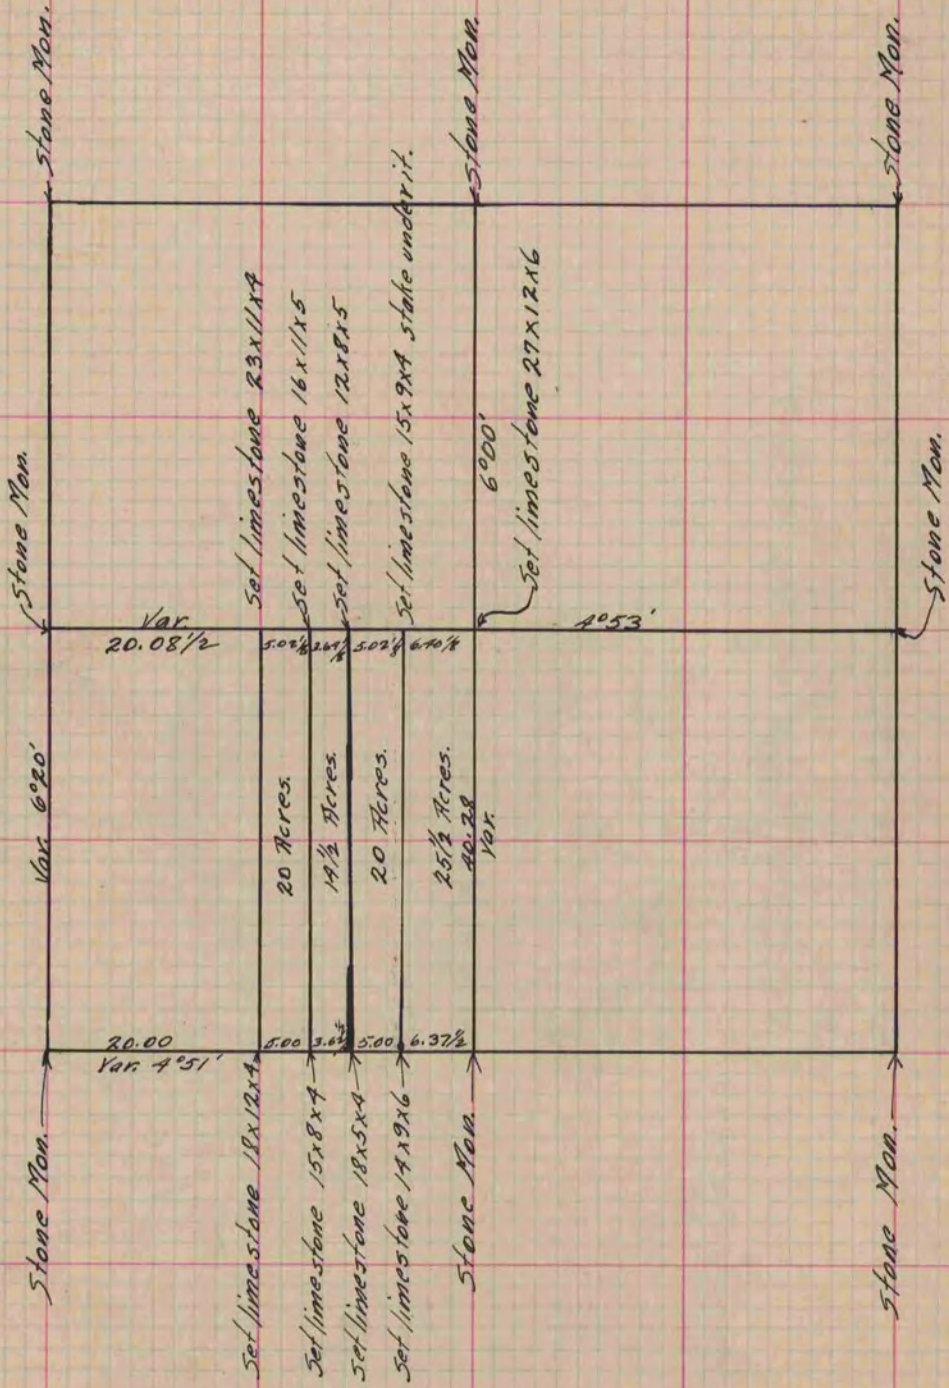 Stone Mon.
Stone Mon.
Stone Mon.
Stone Mon.
Set limestone 23x11x4
Set limestone 16x11x5
Set limestone 12x8x5
Set limestone 15x9x4 stake under it.
6°00'
Set limestone 27x12x6
Stone Mon.
Var.
20.08 1/2
5.02 1/8
5.02 1/8
6.40 1/8
4°53'
Var. 6°20'
20 Acres.
14 1/2 Acres.
20 Acres.
25 1/2 Acres.
40.28
Var.
20.00
Var. 4°51'
5.00
5.00
6.37 1/2
Stone Mon.
Set limestone 18x12x4
Set limestone 15x8x4
Set limestone 18x5x4
Set limestone 14x9x6
Stone Mon.
Stone Mon.